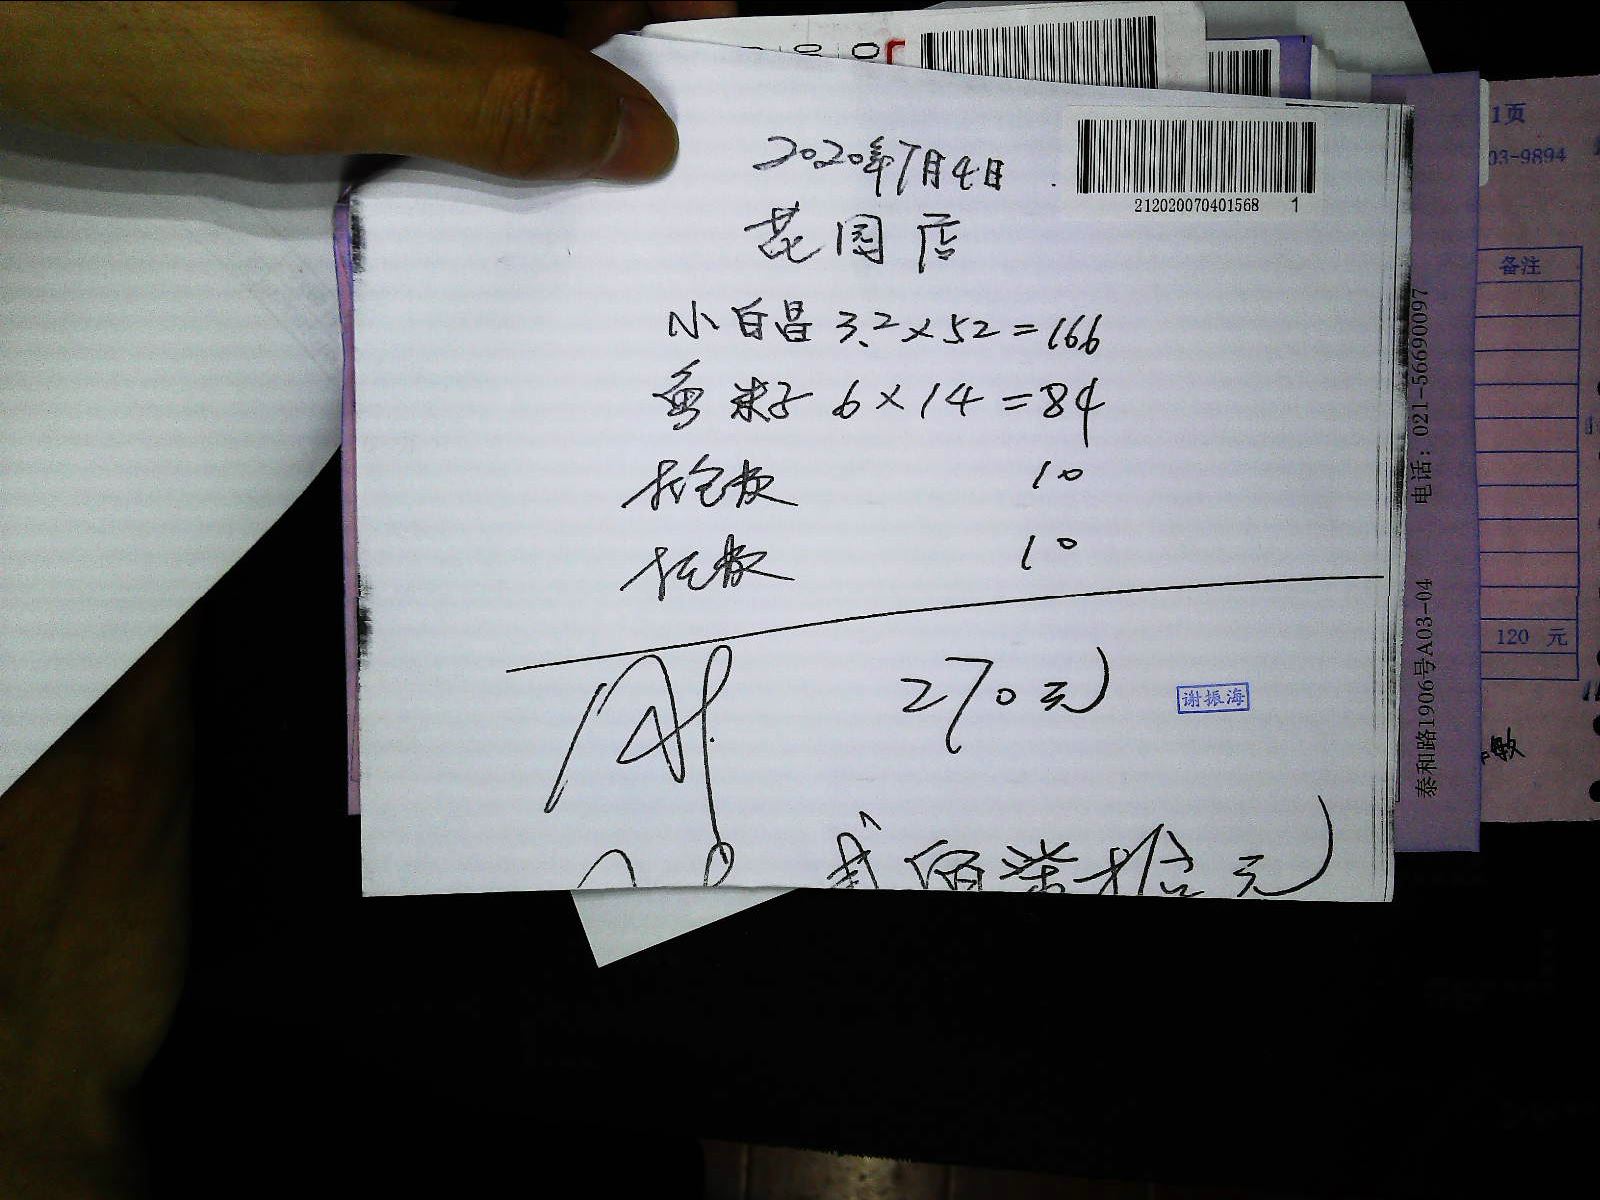 2020年7月4日
212020070401568 1
花园店
小白昌 3.2×52=166
鱼米子 6×14=84
10
10
270元
谢振海
贰佰柒拾元
电话：021-56690097
泰和路1906号A03-04
1页
03-9894
备注
120 元